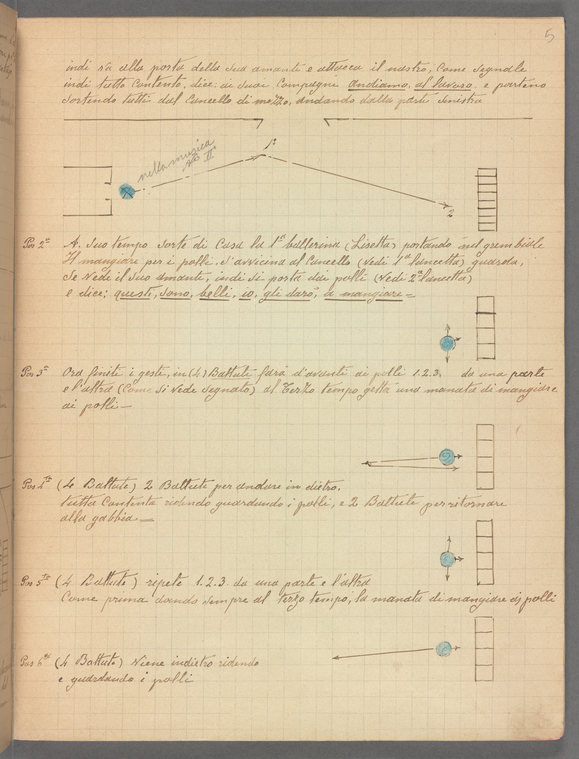 5
indi va alla porta della sua amante e attacca il nastro, come segnale
indi tutto contento, dice: ai suoi compagni andiamo, al lavoro, e partono
sortendo tutti dal cancello di mezzo, andando dalla parte sinistra
nella musica
No II
1a
2
Pos 2a A suo tempo sorte di casa la 1a ballerina (Lisetta) portando nel grembiale
Il mangiare per i polli, s'avvicina al Cancello (vedi 1a lancetta) guarda,
se vede il suo amante, indi si porta dai polli (vedi 2a lancetta)
e dice; questi, sono, belli, io, gli darò, a mangiare =
Pos 3a Ora finite i gesti, in (4) Battute farà d'avanti ai polli 1.2.3. da una parte
e l'altra (come si vede segnato) al Terzo tempo getta una manata di mangiare
ai polli —
Pos 4ta (4 Battute) 2 Battute per andare in dietro.
tutta contenta ridendo guardando i polli, e 2 Battute per ritornare
alla gabbia —
Pos 5ta (4 Battute) ripete 1.2.3. da una parte e l'altra
come prima dando sempre al terzo tempo, la manata di mangiare ai polli
Pos 6ta (4 Battute) viene indietro ridendo
e guardando i polli